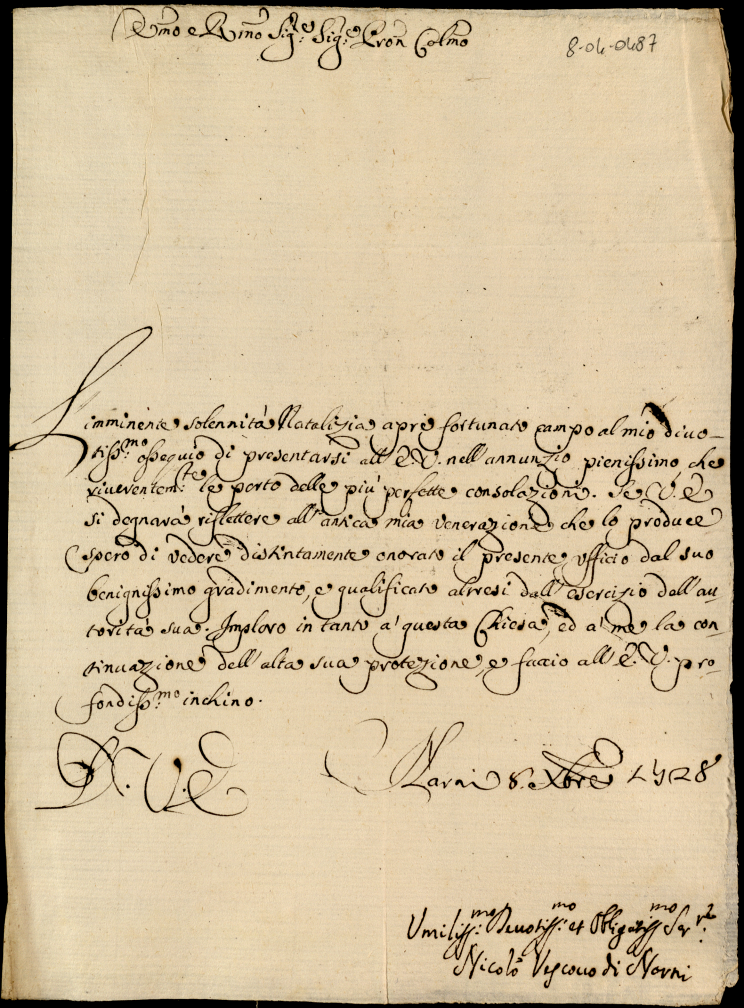 Emo e Rmo Sig.re Sig.re Pron Colmo
8-04-0487
L'imminente solennità Natalizia apre fortunato campo al mio divo-
tiss.mo ossequio di presentarsi all'E.V. nell'annunzio pienissimo, che
riverentem.te le porto delle più perfette consolazioni. Se V.E.
si degnarà riflettere all'antica mia venerazione che lo produce
spero di vedere distintamente onorato il presente ufficio dal suo
benignissimo gradimento, e qualificato altresì dall'esercizio dell'au-
torità sua. Imploro in tanto a' questa Chiesa, ed a' me la con-
tinuazione dell'alta sua protezione, e faccio all'E.V. pro-
fondiss.mo inchino.
D. V. E.
Narni 8. Xbre 1728
Umiliss.mo Devotiss.mo et Obligatiss.mo Ser.re
Nicolò Vescovo di Narni